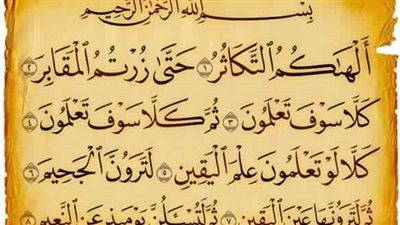 بِسْمِ ٱللَّهِ ٱلرَّحْمَٰنِ ٱلرَّحِيمِ
أَلْهَىٰكُمُ ٱلتَّكَاثُرُ ١ حَتَّىٰ زُرْتُمُ ٱلْمَقَابِرَ ٢
كَلَّا سَوْفَ تَعْلَمُونَ ٣ ثُمَّ كَلَّا سَوْفَ تَعْلَمُونَ ٤
كَلَّا لَوْ تَعْلَمُونَ عِلْمَ ٱلْيَقِينِ ٥ لَتَرَوُنَّ ٱلْجَحِيمَ ٦
ثُمَّ لَتَرَوُنَّهَا عَيْنَ ٱلْيَقِينِ ٧ ثُمَّ لَتُسْـَٔلُنَّ يَوْمَئِذٍ عَنِ ٱلنَّعِيمِ ٨